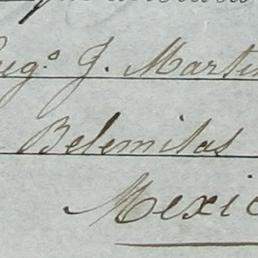 Eugº J. Martin
Belemitas
Mexic